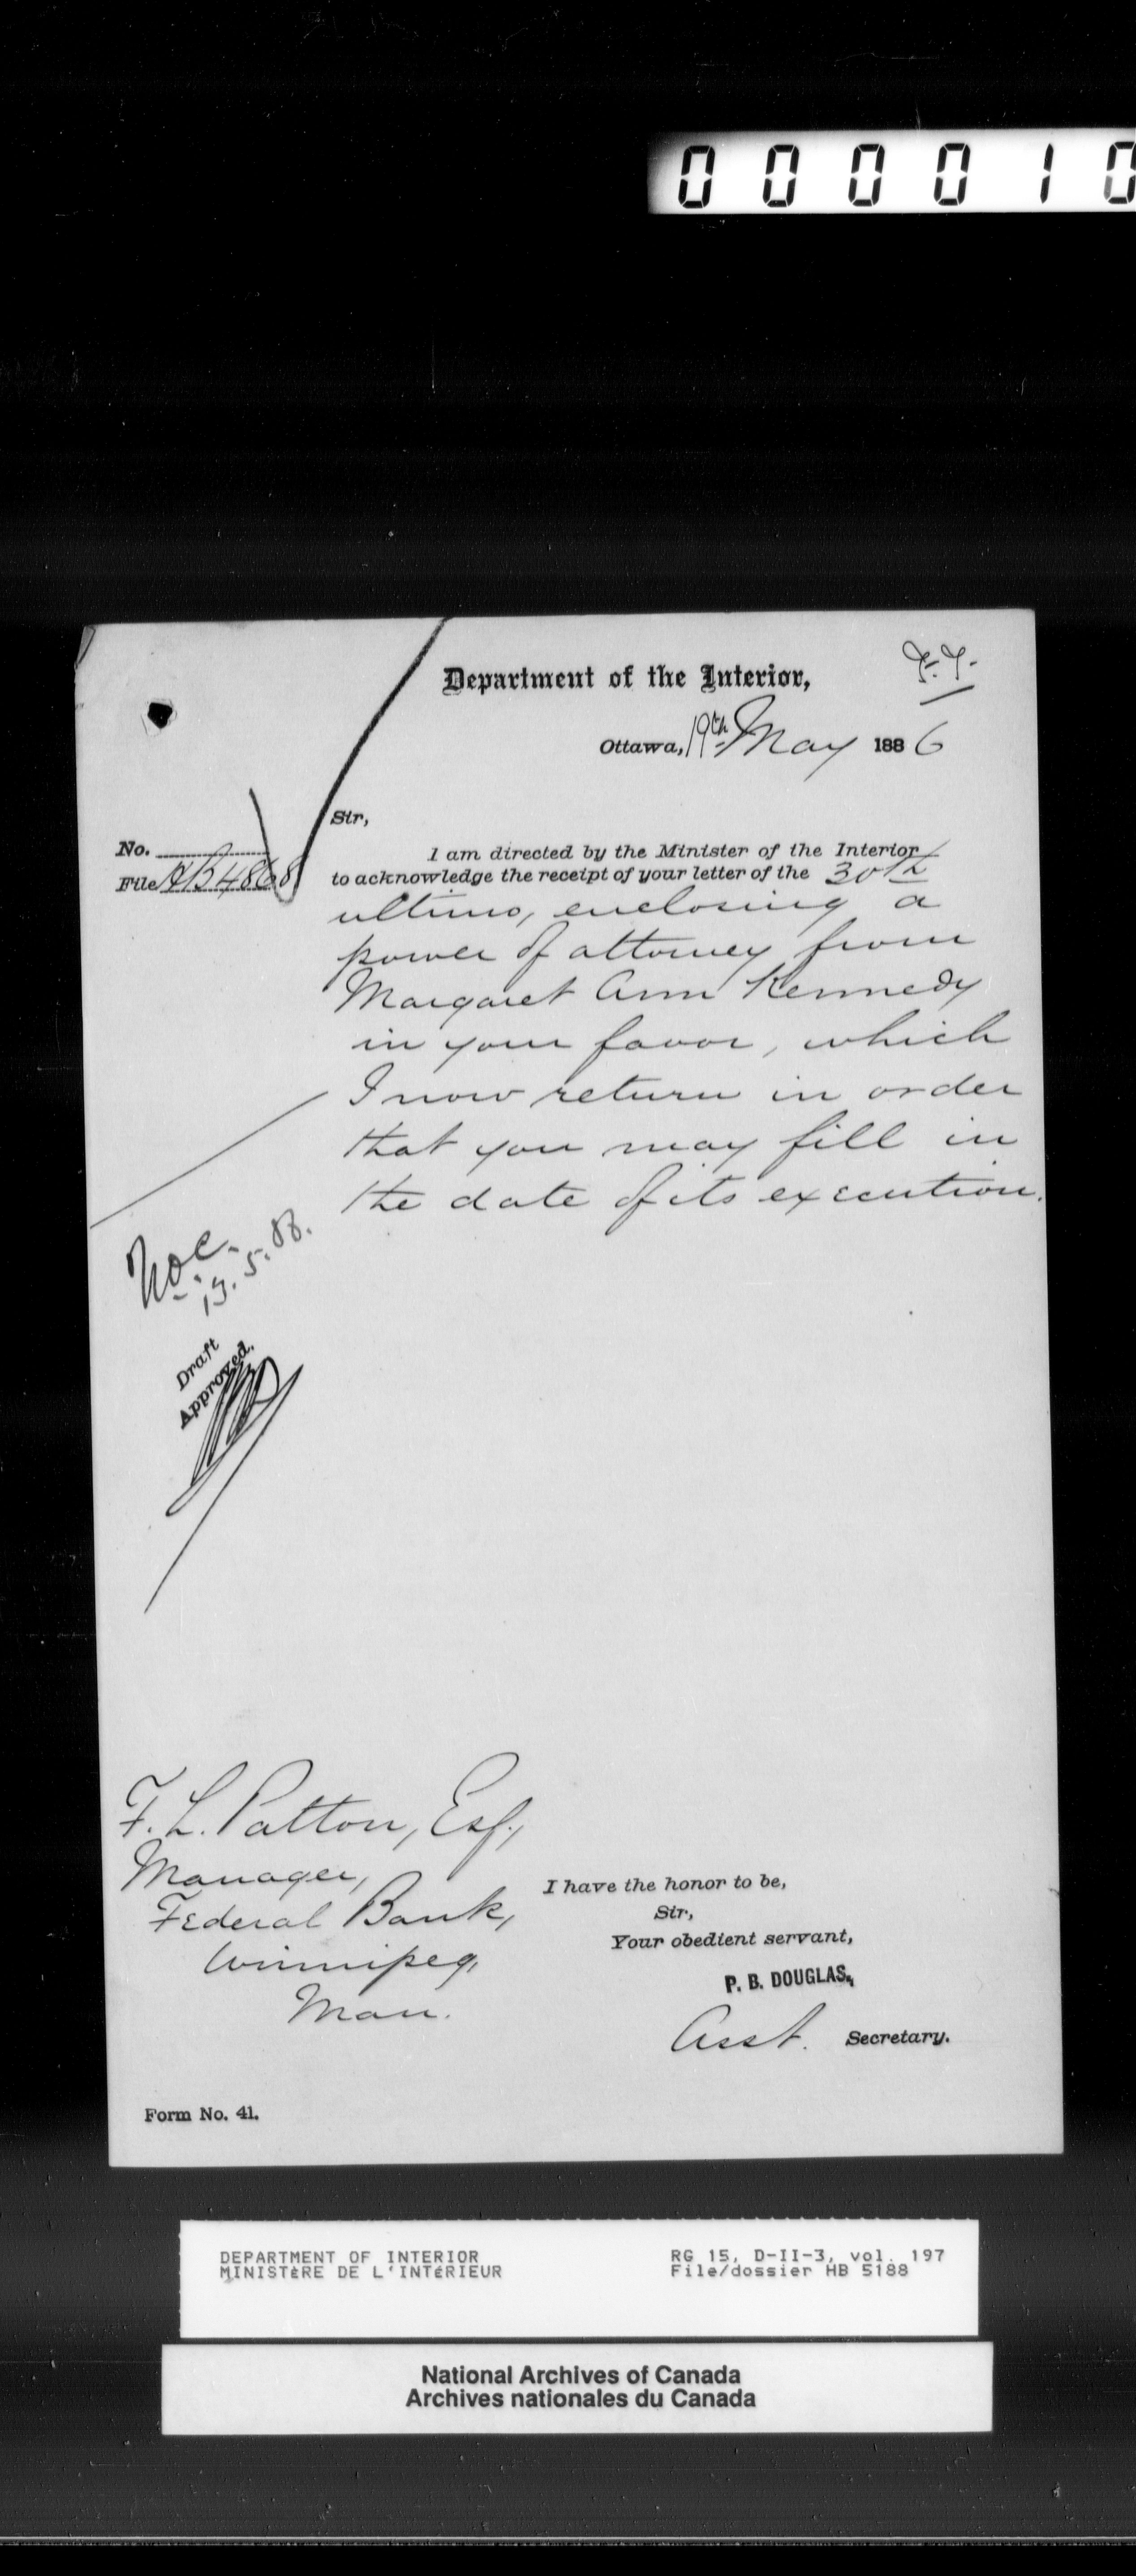 0 0 0 0 1 0
Department of the Interior,
Ottawa, 19th May 1886
Sir,
No.
File HB 4868
I am directed by the Minister of the Interior
to acknowledge the receipt of your letter of the 30th
ultimo, enclosing a
power of attorney from
Margaret Ann Kennedy
in your favor, which
I now return in order
that you may fill in
the date of its execution.
Draft
Approved.
F. L. Patton, Esq.,
Manager,
Federal Bank,
Winnipeg,
Man.
I have the honor to be,
Sir,
Your obedient servant,
P. B. DOUGLAS,
Asst. Secretary.
Form No. 41.
DEPARTMENT OF INTERIOR
MINISTÈRE DE L'INTÉRIEUR
RG 15, D-II-3, vol. 197
File/dossier HB 5188
National Archives of Canada
Archives nationales du Canada